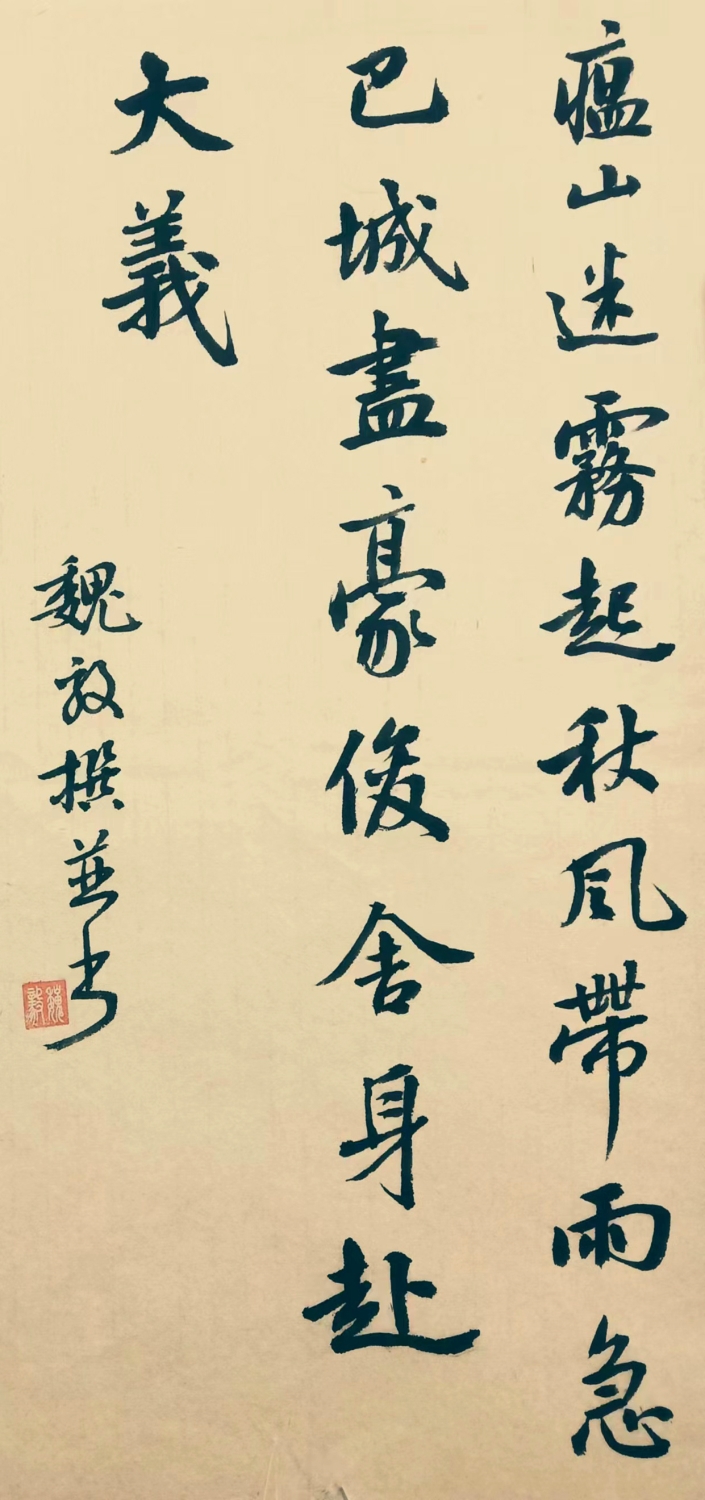 瘟山迷霧起秋风帶雨急
巴城盡豪俊舍身赴
大義
魏毅撰並书
魏毅